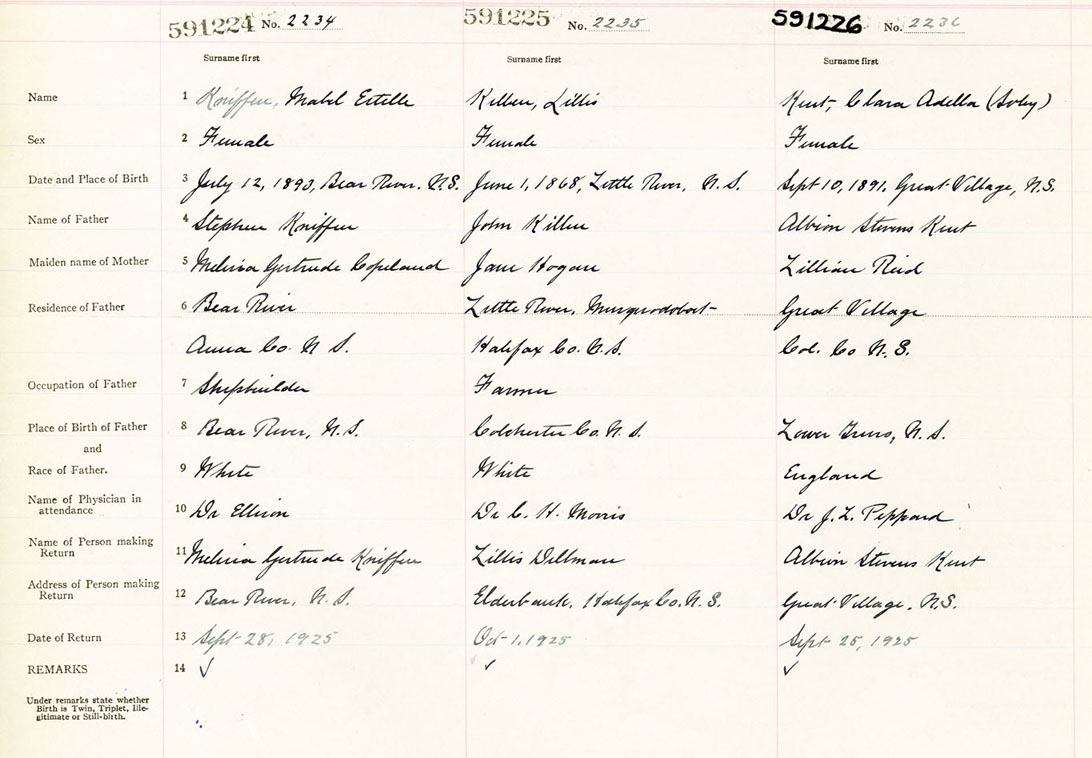 591224 No. 2234 591225 No. 2235 591226 No. 2236
Surname first Surname first Surname first
Name 1 Kniffen, Mabel Estelle Killen, Lillis Kent, Clara Adella
Sex 2 Female Female Female
Date and Place of Birth 3 July 12, 1893, Bear River. N.S. June 1, 1868, Little River, N.S. Sept 10, 1891, Great Village, N.S.
Name of Father 4 Stephen Kniffen John Killen Albion Stevens Kent
Maiden name of Mother 5 Gertrude Copeland Jane Hogan Lillian Reid
Residence of Father 6 Bear River Little River, Musquodoboit Great Village
Anna Co. N S. Halifax Co. N.S. Col. Co N.S.
Occupation of Father 7 Shipbuilder Farmer
Place of Birth of Father 8 Bear River, N.S. Colchester Co. N.S. Lower Truro, N.S.
and
Race of Father. 9 White White England
Name of Physician in
attendance 10 Dr Ellison Dr C. H. Morris Dr J. L. Peppard
Name of Person making
Return 11 Gertrude Kniffen Lillis Dillman Albion Stevens Kent
Address of Person making
Return 12 Bear River, N.S. Elderbank, Halifax Co. N.S. Great Village. N.S.
Date of Return 13 Sept 28, 1925 Oct 1, 1925 Sept 25, 1925
REMARKS 14 ✓ ✓ ✓
Under remarks state whether
Birth is Twin, Triplet, Ille-
gitimate or Still-birth.